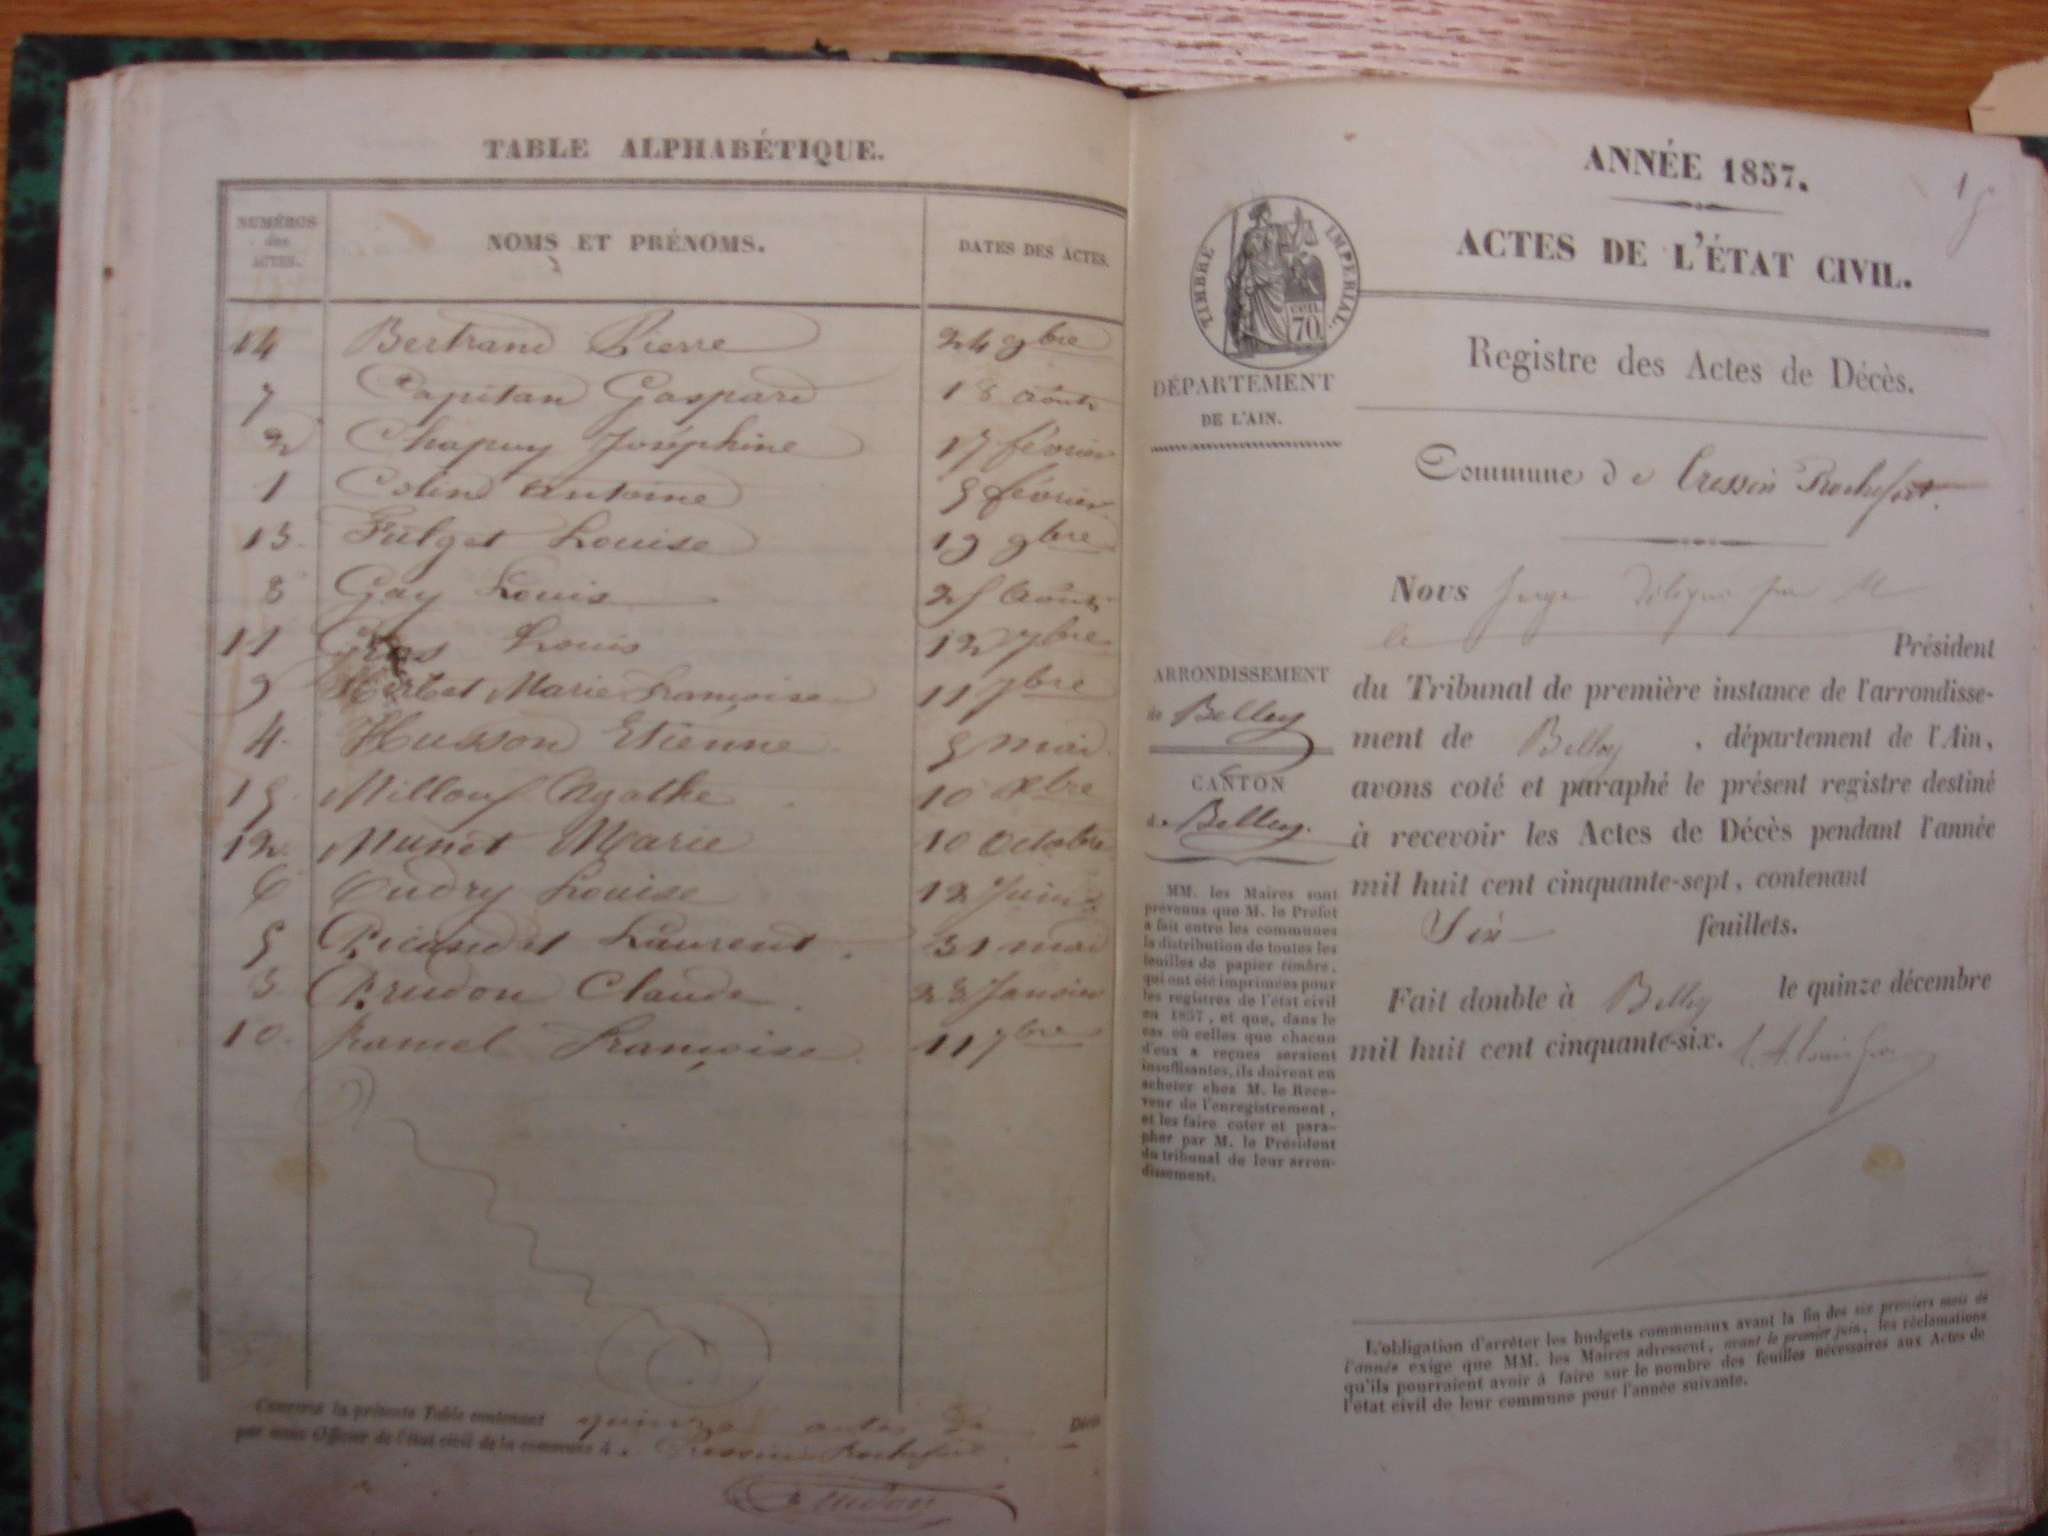 TABLE ALPHABÉTIQUE.
NUMÉROS des ACTES. NOMS ET PRÉNOMS. DATES DES ACTES.
14 Bertrand Pierre 24 9bre
7 Capitan Gaspard 18 août
2 Chapuy Joséphine 17 février
1 Colin Antoine 5 février
13. Fulget Louise 19 9bre
8 Gay Louis 25 août
11 Gros Louis 12 7bre
9 Herbet Marie Françoise 11 7bre
4. Husson Etienne 5 mai
15. Milloux Agathe 10 Xbre
12. Munet Marie 10 Octobre
6 Oudry Louise 12 Juin
5 Picandet Laurent. 31 mai
3 Prudon Claude 28 Janvier
10. Ramel Françoise 11 7bre
Certifié la présente Table contenant quinze actes de Décès
par nous Officier de l'état civil de la commune d. Cressin Rochefort
Prudon
ANNÉE 1857.
1
ACTES DE L'ÉTAT CIVIL.
TIMBRE IMPÉRIAL.
70
Registre des Actes de Décès.
DÉPARTEMENT
DE L'AIN.
Commune de Cressin Rochefort.
ARRONDISSEMENT
de Belley
CANTON
de Belley.
MM. les Maires sont
prévenus que M. le Préfet
a fait entre les communes
la distribution de toutes les
feuilles de papier timbré,
qui ont été imprimées pour
les registres de l'état civil
en 1857, et que, dans le
cas où celles que chacun
d'eux a reçues seraient
insuffisantes, ils doivent en
acheter chez M. le Rece-
veur de l'enregistrement,
et les faire coter et para-
pher par M. le Président
du tribunal de leur arron-
dissement.
Nous Juge délégué par M
le Président
du Tribunal de première instance de l'arrondisse-
ment de Belley, département de l'Ain,
avons coté et paraphé le présent registre destiné
à recevoir les Actes de Décès pendant l'année
mil huit cent cinquante-sept, contenant
Six feuillets.
Fait double à Belley le quinze décembre
mil huit cent cinquante-six.
L'obligation d'arrêter les budgets communaux avant la fin des six premiers mois de
l'année exige que MM. les Maires adressent, avant le premier juin, les réclamations
qu'ils pourraient avoir à faire sur le nombre des feuilles nécessaires aux Actes de
l'état civil de leur commune pour l'année suivante.